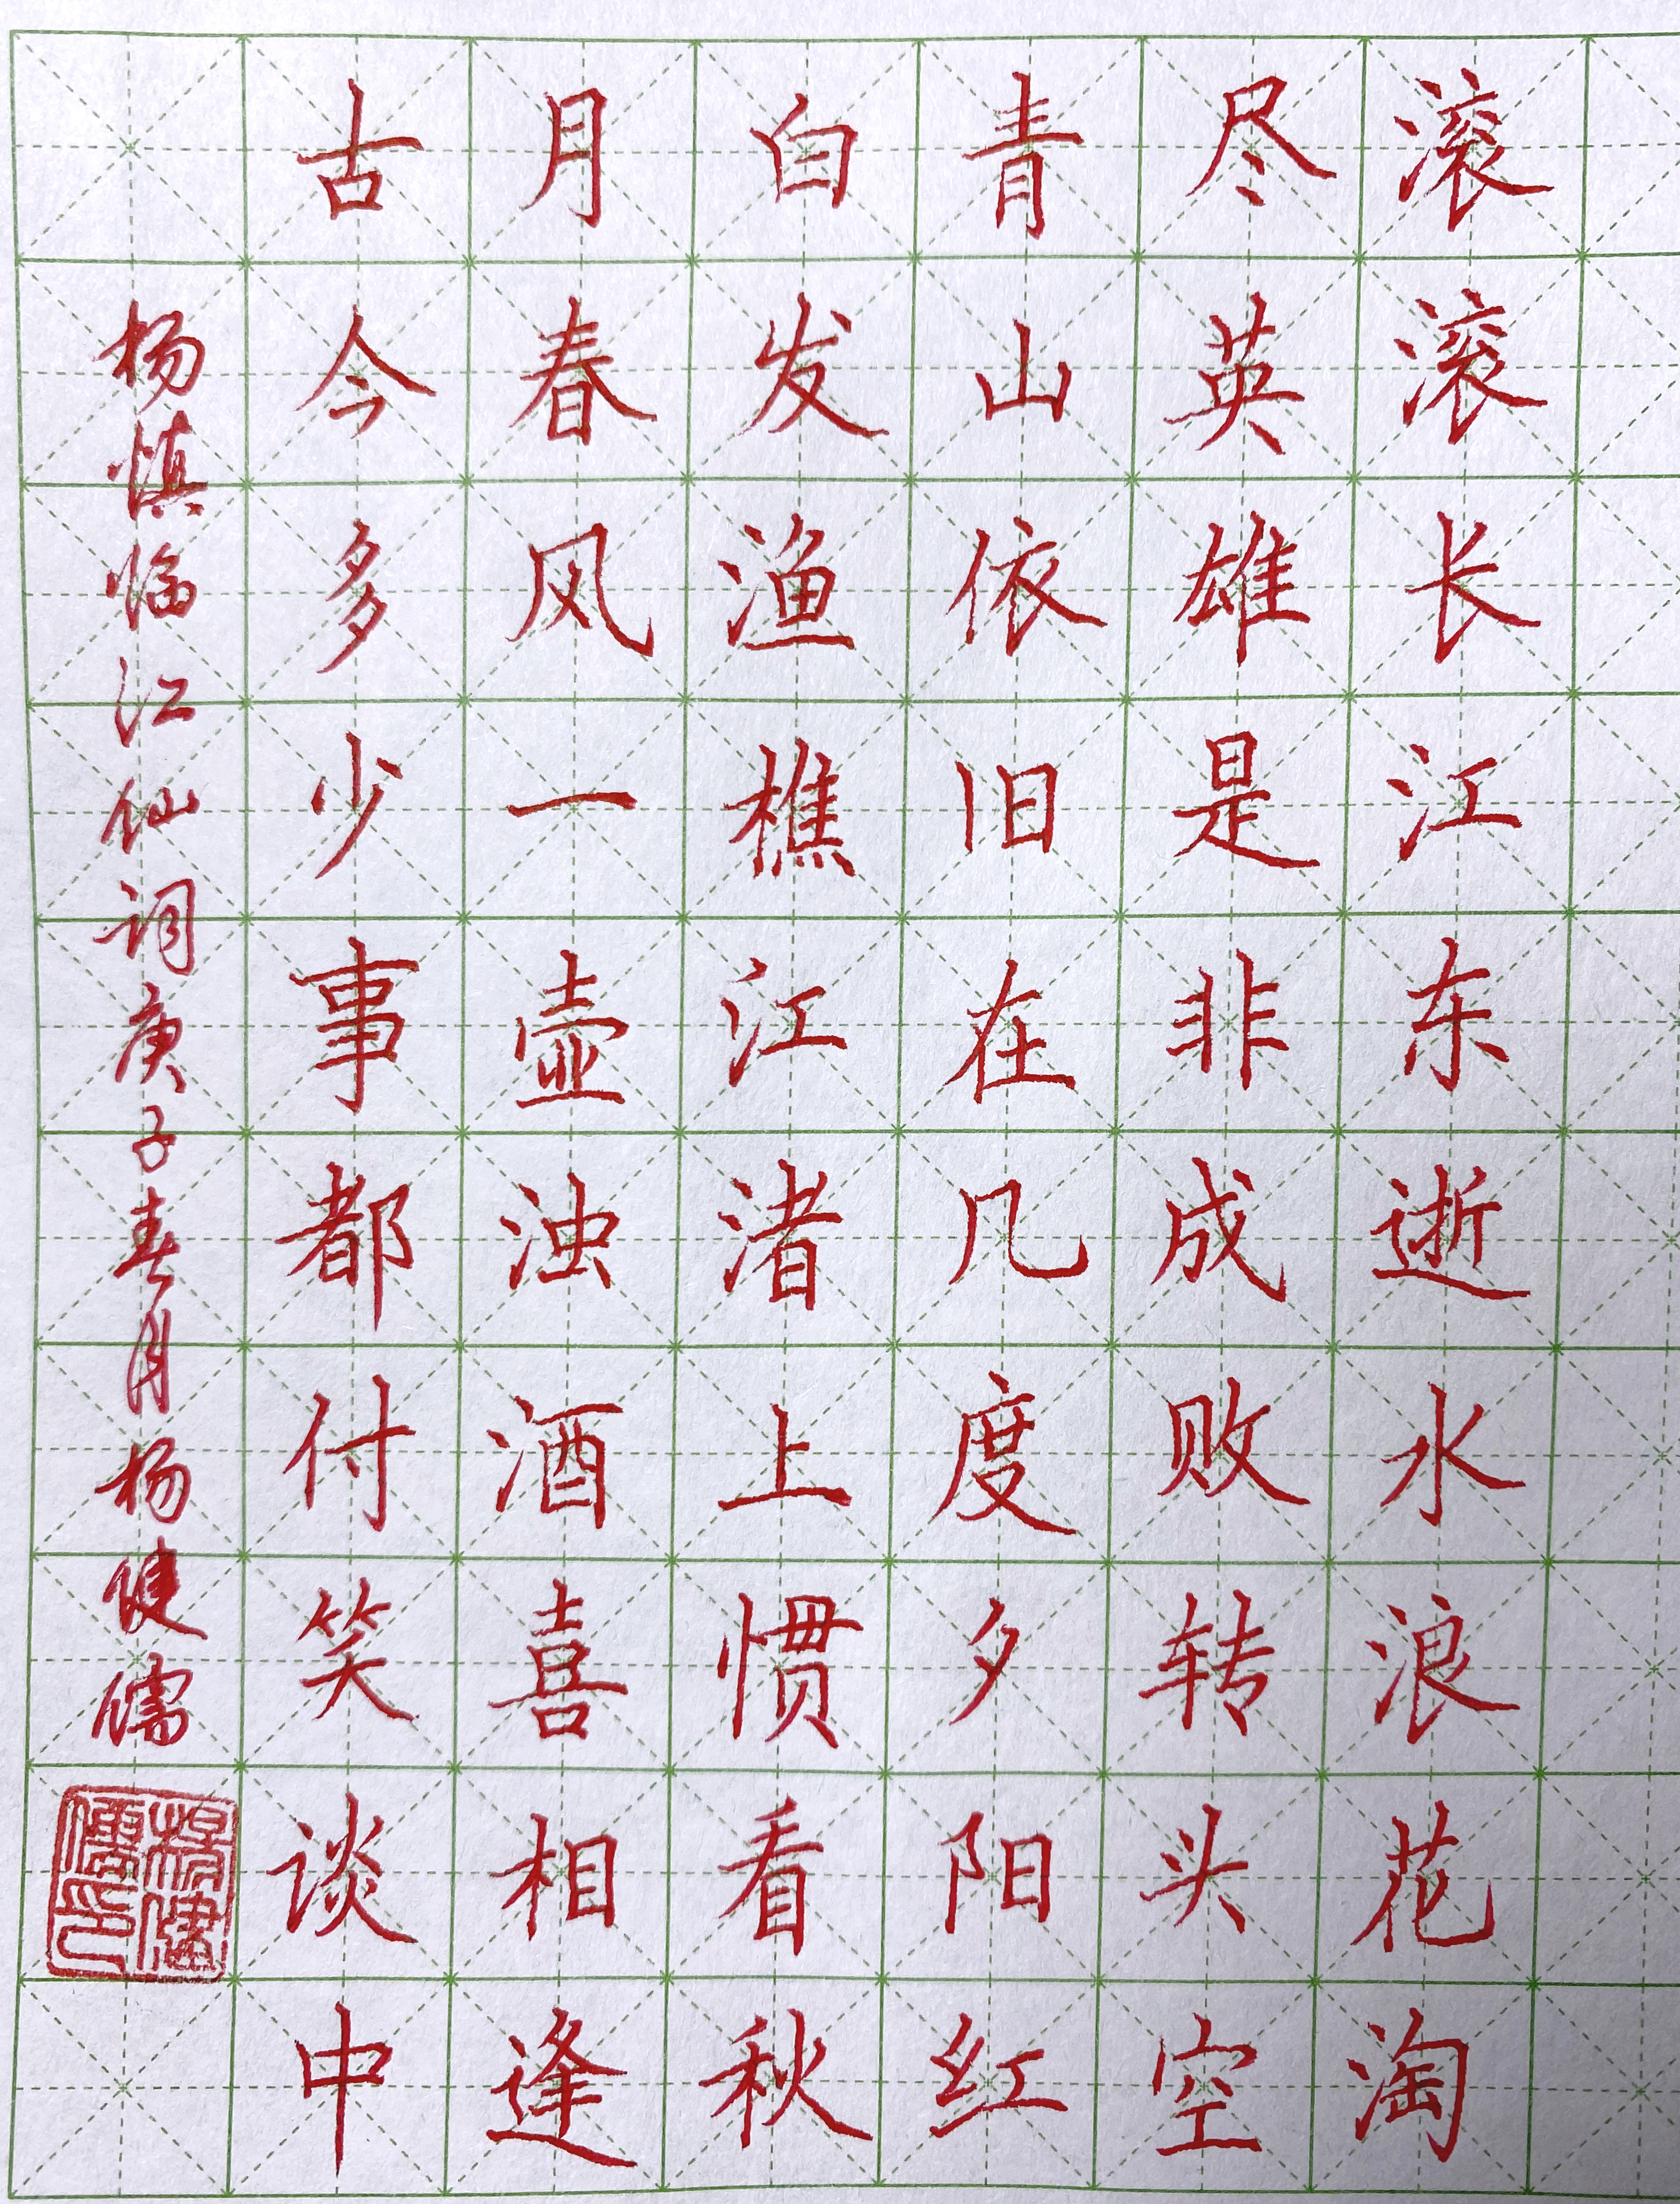 滚滚长江东逝水浪花淘
尽英雄是非成败转头空
青山依旧在几度夕阳红
白发渔樵江渚上惯看秋
月春风一壶浊酒喜相逢
古今多少事都付笑谈中
杨慎临江仙词庚子春月杨健儒
杨健儒印